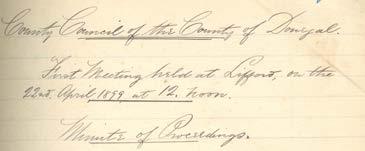 County Council of the County of Donegal.
First Meeting held at Lifford, on the
22nd. April 1899 at 12. noon.
Minute of Proceedings.